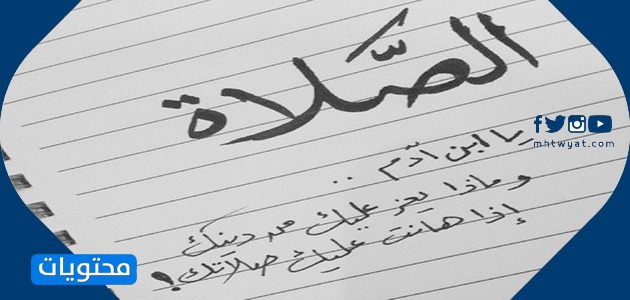 الصَّلاة
يا ابن آدم ..
وماذا يعز عليك من دينك
إذا هانت عليك صلاتك!
mhtwyat.com
محتويات